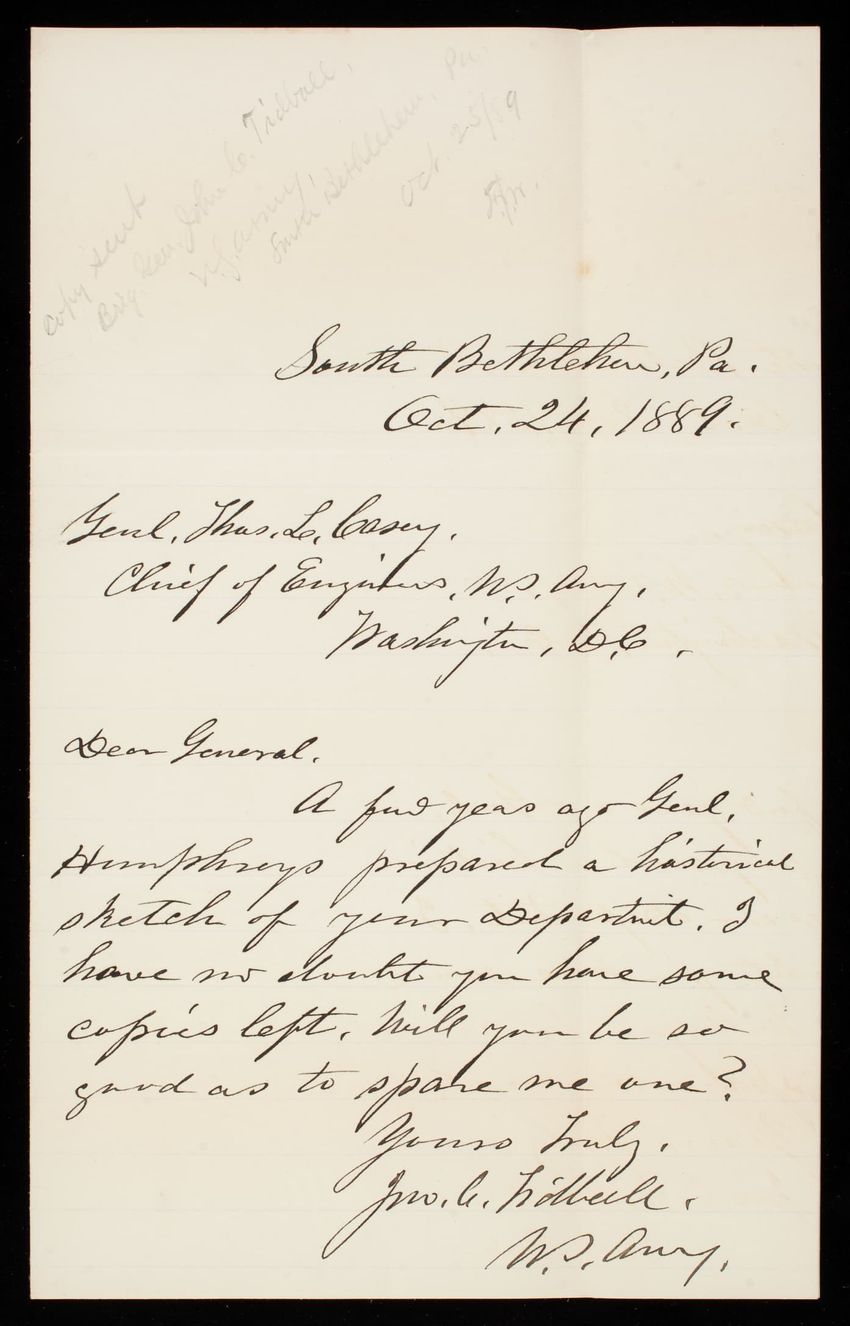 copy sent
Brig. Gen. John C. Tidball,
U.S. Army,
South Bethlehem, Pa.
Oct. 25/89
South Bethlehem, Pa.
Oct. 24, 1889.
Genl. Thos. L. Casey.
Chief of Engineers, U.S. Army,
Washington, D.C.
Dear General.
A few years ago Genl.
Humphreys prepared a historical
sketch of your Department. I
have no doubt you have some
copies left. Will you be so
good as to spare me one?
Yours Truly,
Jno. C. Tidball.
U.S. Army.